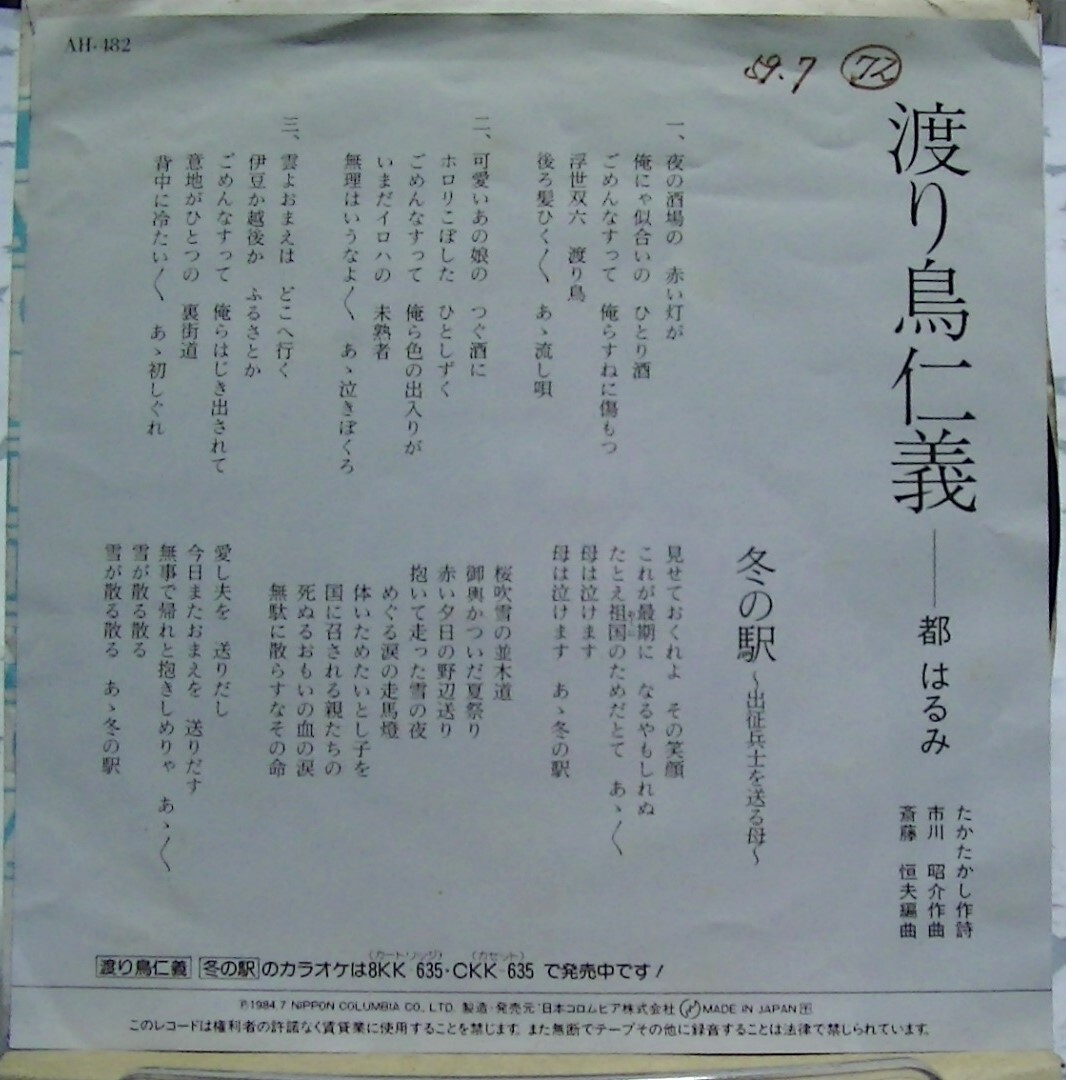 AH-482
59.7 ㋐
渡り鳥仁義
都はるみ
たかたかし作詩
市川 昭介作曲
斎藤 恒夫編曲
一、夜の酒場の 赤い灯が
俺にゃ似合いの ひとり酒
ごめんなすって 俺らすねに傷もつ
浮世双六 渡り鳥
後ろ髪ひく〱 あゝ流し唄
二、可愛いあの娘の つぐ酒に
ホロリこぼした ひとしずく
ごめんなすって 俺ら色の出入りが
いまだイロハの 未熟者
無理はいうなよ〱 あゝ泣きぼくろ
三、雲よおまえは どこへ行く
伊豆か越後か ふるさとか
ごめんなすって 俺らはじき出されて
意地がひとつの 裏街道
背中に冷たい〱 あゝ初しぐれ
冬の駅 〜出征兵士を送る母〜
見せておくれよ その笑顔
これが最期に なるやもしれぬ
たとえ祖国のためだとて あゝ〱
母は泣けます
母は泣けます あゝ冬の駅
桜吹雪の並木道
御輿かついだ夏祭り
赤い夕日の野辺送り
抱いて走った雪の夜
めぐる涙の走馬燈
体いためたいとし子を
国に召される親たちの
死ぬるおもいの血の涙
無駄に散らすなその命
愛し夫を 送りだし
今日またおまえを 送りだす
無事で帰れと抱きしめりゃ あゝ〱
雪が散る散る
雪が散る散る あゝ冬の駅
渡り鳥仁義 冬の駅 のカラオケは8KK-635(カートリッジ)・CKK-635(カセット)で発売中です!
Ⓟ1984.7 NIPPON COLUMBIA CO., LTD. 製造・発売元 日本コロムビア株式会社 MADE IN JAPAN
このレコードは権利者の許諾なく賃貸業に使用することを禁じます。また無断でテープその他に録音することは法律で禁じられています。